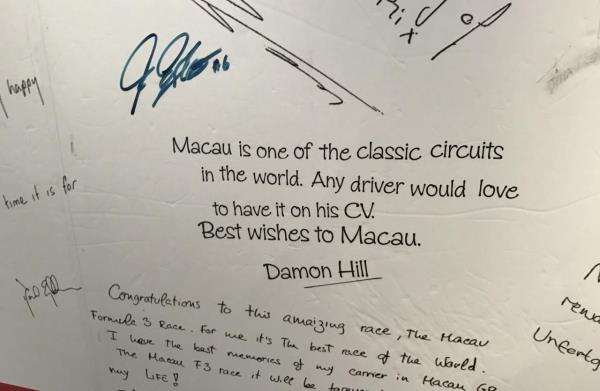 happy
time it is for
Macau is one of the classic circuits
in the world. Any driver would love
to have it on his CV.
Best wishes to Macau.
Damon Hill
Congratulations to this amaizing race, The Macau
Formula 3 Race. For me it's The best race of the World.
I have the best memories of my carrier in Macau GP
The Macau F3 race it will be
my LIFE!